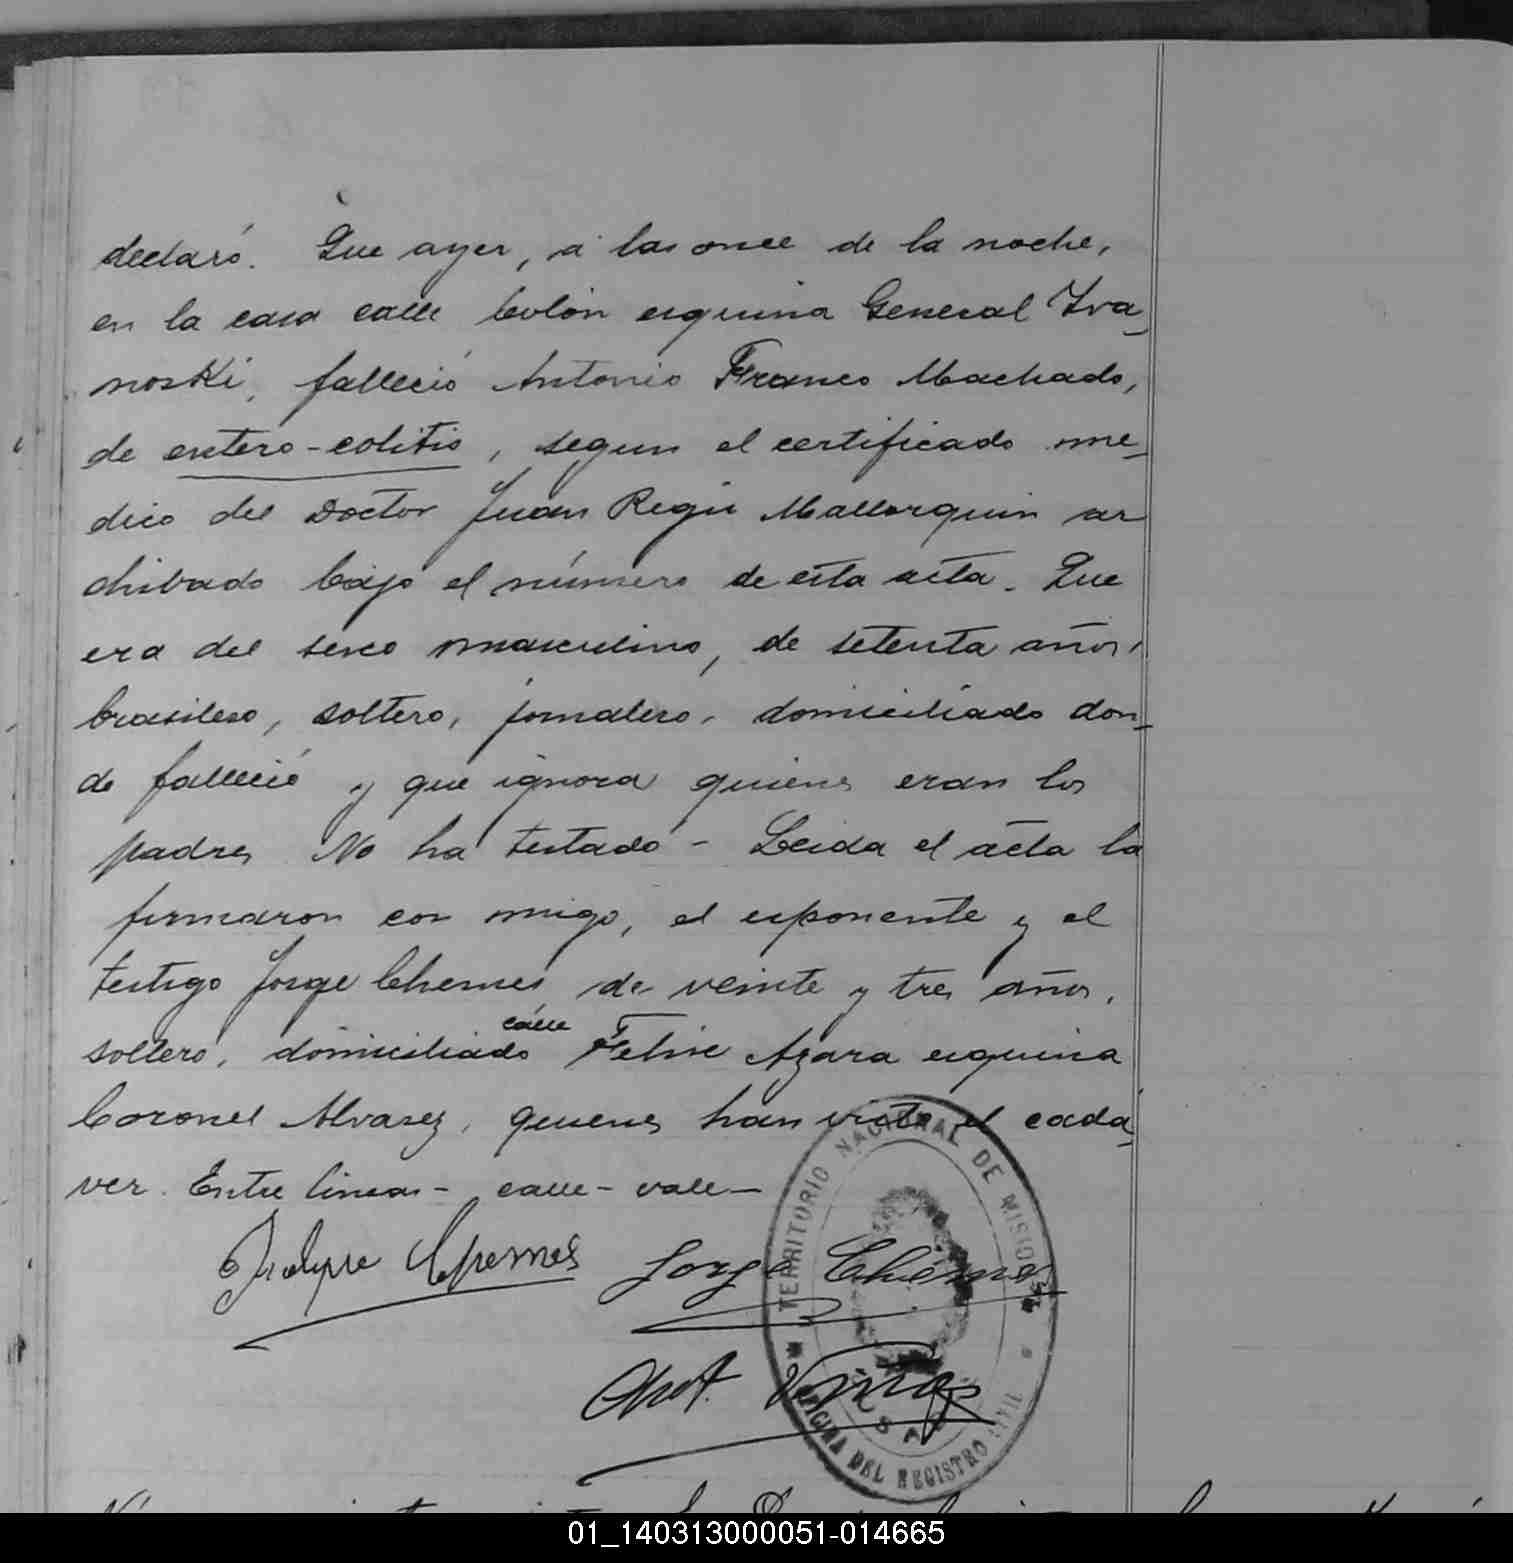 declaró. Que ayer, á las once de la noche,
en la casa calle Colón esquina General Iva-
noski, falleció Antonio Franco Machado,
de entero-colitis, segun el certificado me-
dico del Doctor Juan Regis Mallorquin ar
chivado bajo el número de esta acta. Que
era del sexo masculino, de setenta años,
brasilero, soltero, jornalero, domiciliado don-
de falleció y que ignora quienes eran los
padres No ha testado - Leida el acta la
firmaron con migo, el exponente y el
testigo Jorge Chemes de veinte y tres años,
calle
soltero, domiciliado Felix Azara esquina
Coronel Alvarez, quienes han visto el cada-
ver. Entre lineas - calle - vale -
Chemes Jorge Chemes
Ant.
TERRITORIO NACIONAL DE MISIONES
OFICINA DEL REGISTRO CIVIL
01_140313000051-014665